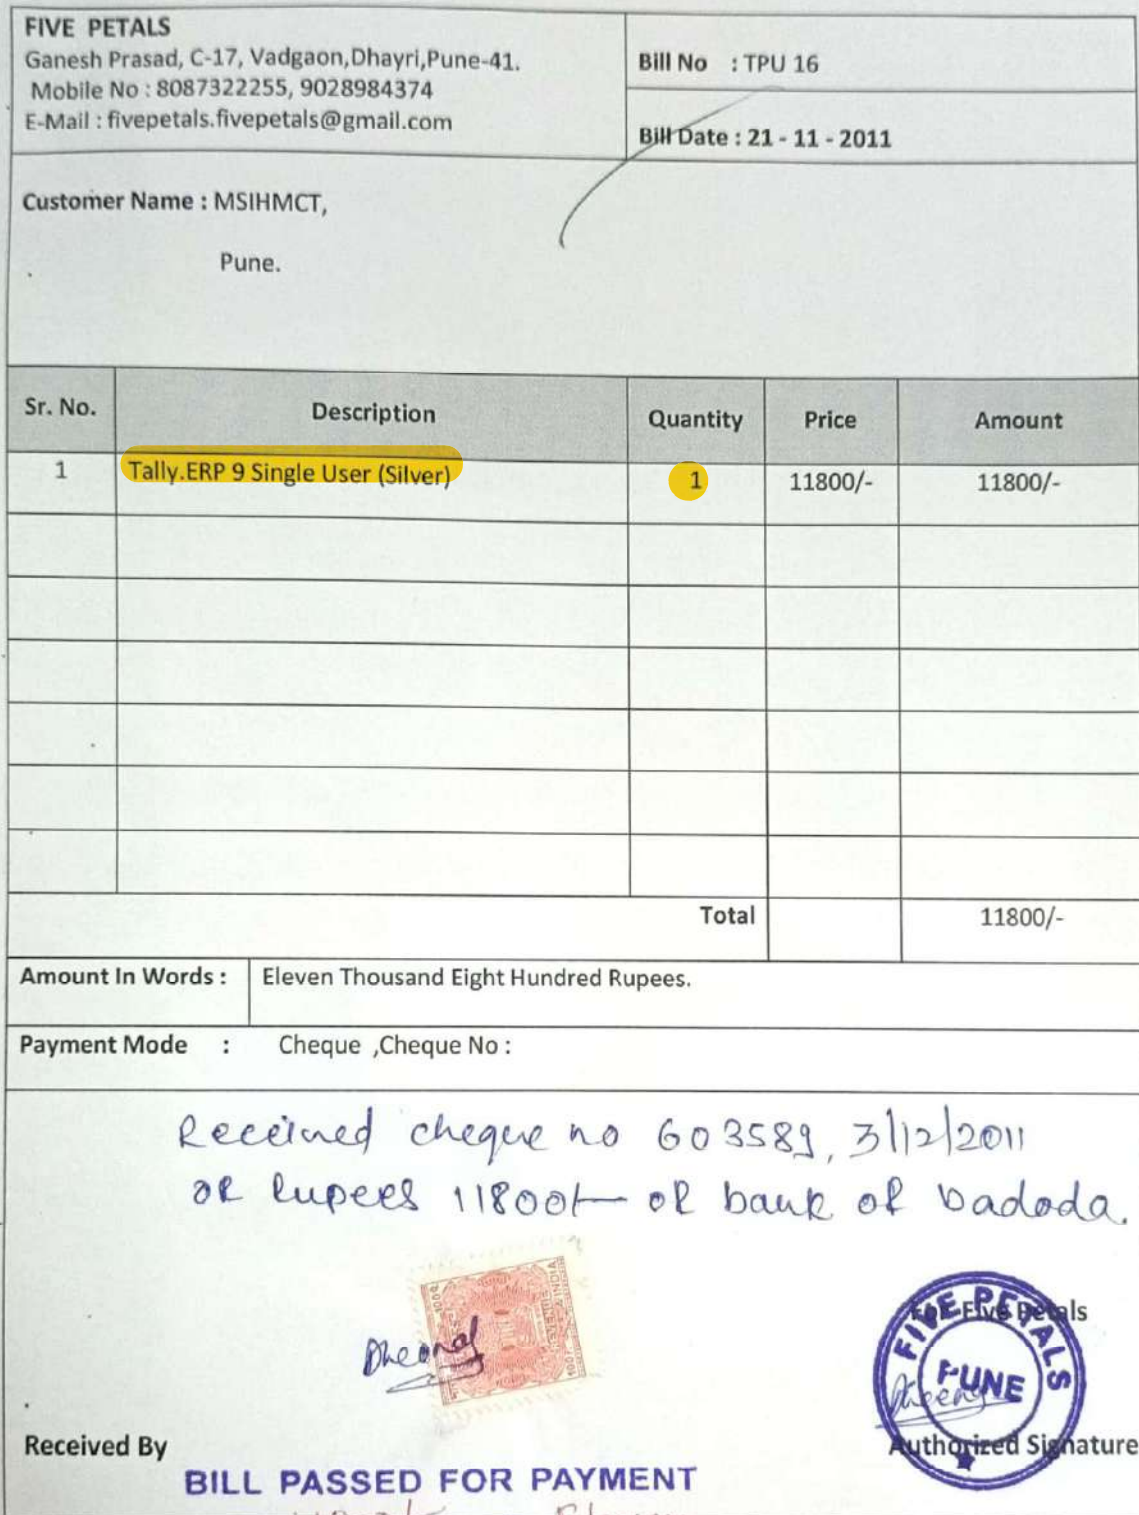 FIVE PETALS
Ganesh Prasad, C-17, Vadgaon,Dhayri,Pune-41.
Mobile No : 8087322255, 9028984374
E-Mail : fivepetals.fivepetals@gmail.com
Bill No : TPU 16
Bill Date : 21 - 11 - 2011
Customer Name : MSIHMCT,
Pune.
Sr. No. Description Quantity Price Amount
1 Tally.ERP 9 Single User (Silver) 1 11800/- 11800/-
Total 11800/-
Amount In Words : Eleven Thousand Eight Hundred Rupees.
Payment Mode : Cheque ,Cheque No :
Received cheque no 603589, 3/12/2011
of Rupees 11800/- of bank of badoda.
For Five Petals
FIVE PETALS
PUNE
Authorized Signature
Received By
BILL PASSED FOR PAYMENT